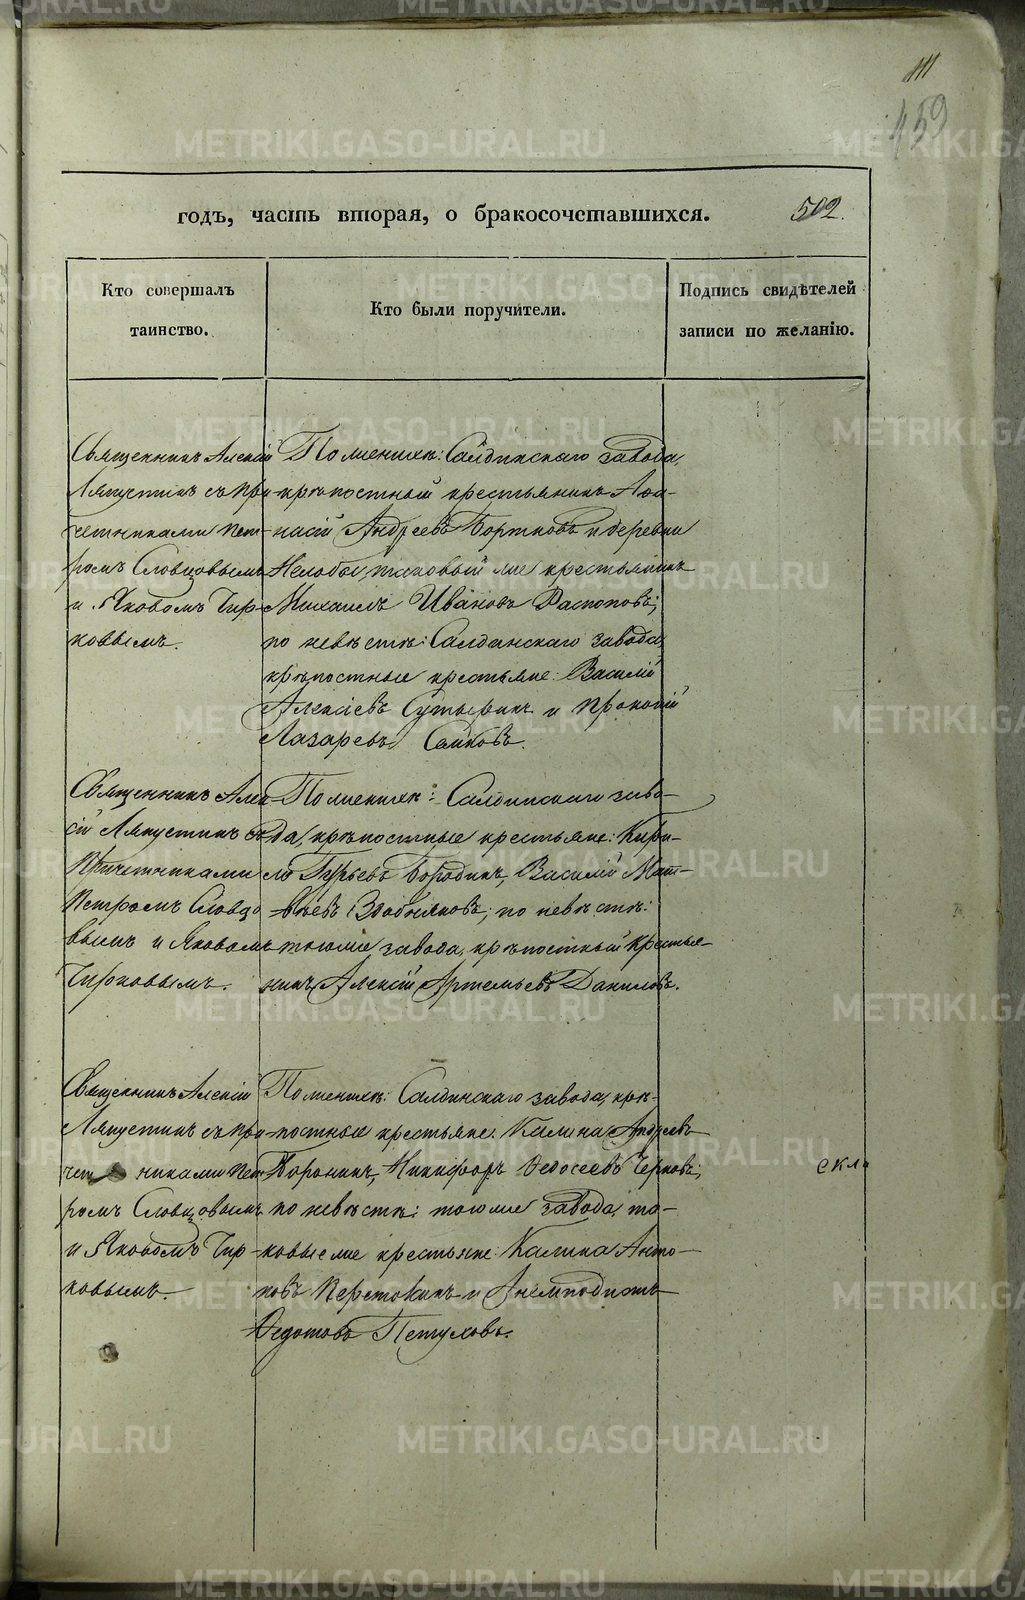 111
459
годъ, часть вторая, о бракосочетавшихся. 502.
Кто совершалъ
таинство.
Кто были поручители.
Подпись свидѣтелей
записи по желанію.
Священникъ Алексій
Ляпустинъ съ при-
четниками Пет-
ромъ Словцовымъ
и Яковомъ Чир-
ковымъ.
По женихѣ: Салдинскаго завода,
крѣпостный крестьянинъ Афа-
насій Андреевъ Бортновъ и деревни
Нелобы, таковый же крестьянинъ
Михаилъ Ивановъ Распоповъ;
по невѣстѣ: Салдинскаго завода
крѣпостные крестьяне: Василій
Алексіевъ Сутыринъ и Прокопій
Лазаревъ
Священникъ Алек-
сій Ляпустинъ съ
Причетниками
Петромъ Словцо-
вымъ и Яковомъ
Чирковымъ.
По женихѣ: Салдинскаго заво-
да, крѣпостные крестьяне: Кири-
ло Гурьевъ Бородинъ, Василій Мат-
вѣевъ по невѣстѣ:
тогоже завода, крѣпостный крестья-
нинъ Алексій Артемьевъ Даниловъ.
Священникъ Алексій
Ляпустинъ съ при-
чет никами Пет-
ромъ Словцовымъ
и Яковомъ Чир-
ковымъ.
По женихѣ: Салдинскаго завода, крѣ-
постные крестьяне: Калина Андреевъ
Воронинъ, Никифоръ Федосеевъ Черновъ;
по невѣстѣ: тогоже завода, та-
ковые же крестьяне: Калина Анто-
новъ и Анемподистъ
Федотовъ Петуховъ.
METRIKI.GASO-URAL.RU